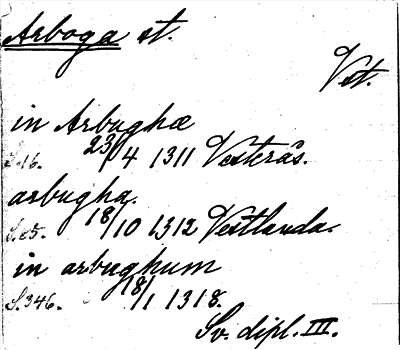 Arboga st.
Vst.
in Arbughæ
S.16. 23/4 1311 Vesterås.
arbugha.
S.85. 18/10 1312 Vestlanda.
in arbughum
S.346. 18/1 1318.
Sv. dipl. III.